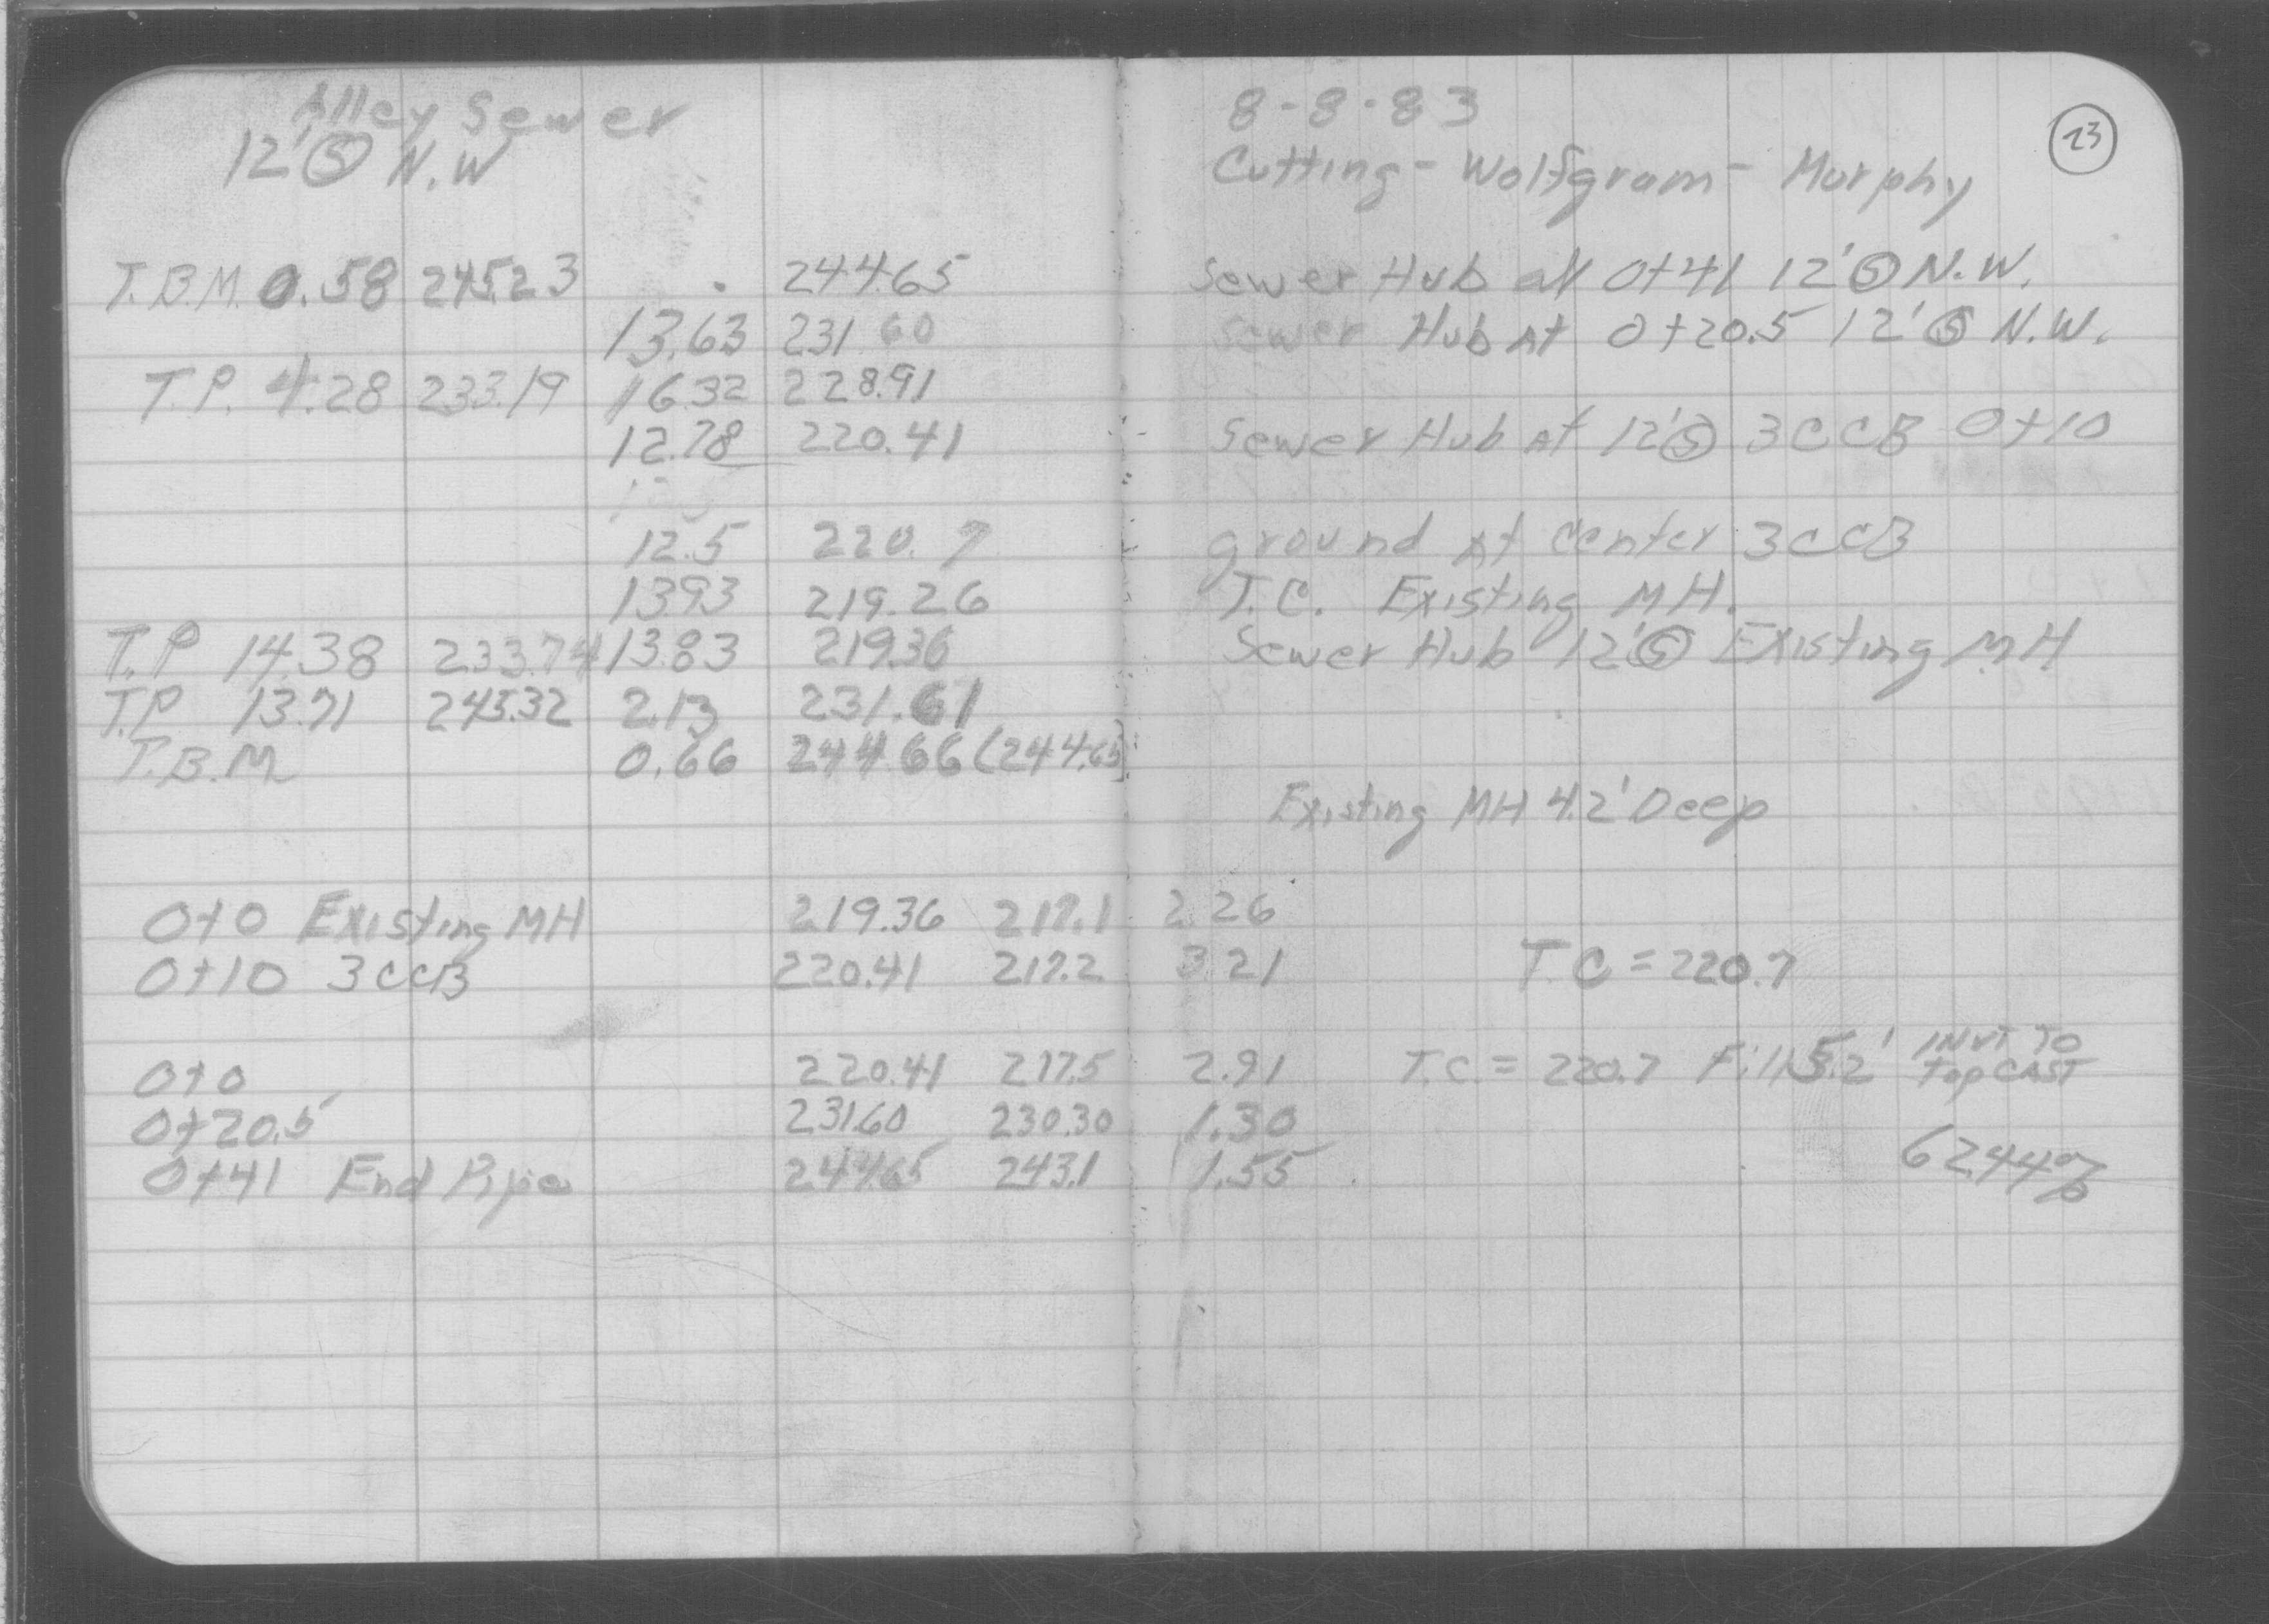 Alley Sewer
12' Ⓢ N.W
T.B.M. 0.58 245.23 244.65
13.63 231.60
T.P. 4.28 233.19 16.32 228.91
12.78 220.41
12.5 220.7
13.93 219.26
T.P 14.38 233.74 13.83 219.36
T.P 13.71 245.32 2.13 231.61
T.B.M 0.66 244.66 (244.65)
0+0 Existing MH 219.36 217.1 2.26
0+10 3CCB 220.41 217.2 3.21
0+0 220.41 217.5 2.91
0+20.5 231.60 230.30 1.30
0+41 End Pipe 244.65 243.1 1.55
8-8-83
23
Cutting - Wolfgram - Murphy
Sewer Hub at 0+41 12' Ⓢ N.W.
Sewer Hub At 0+20.5 12' Ⓢ N.W.
Sewer Hub At 12' Ⓢ 3CCB 0+10
ground At Center 3CCB
T.C. Existing MH.
Sewer Hub 12' Ⓢ Existing MH
Existing MH 4.2' Deep
T.C = 220.7
T.C. = 220.7 Fill 5.2' INVT TO
Top CAST
62.44%